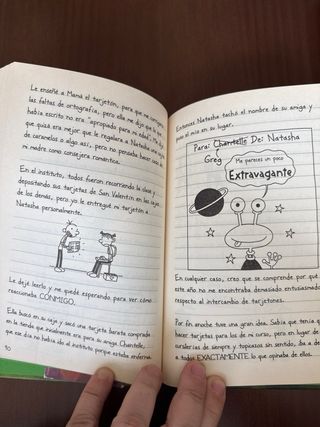 Le enseñé a Mamá el tarjetón, para que me corrigiera
las faltas de ortografía, pero ella me dijo que lo que
había escrito no era "apropiado para mi edad". Me dijo
que quizá era mejor que le regalara a Natasha una cajita
de caramelos o algo así, pero no pensaba hacer caso de
mi madre como consejera romántica.
En el instituto, todos fueron recorriendo la clase y
depositando sus tarjetas de San Valentín en las cajas
de los demás, pero yo le entregué mi tarjetón a
Natasha personalmente.
Le dejé leerlo y me quedé esperando para ver cómo
reaccionaba CONMIGO.
Ella buscó en su caja y sacó una tarjeta barata comprada
en la tienda que inicialmente era para su amiga Chantelle,
que ese día no había ido al instituto porque estaba enferma.
90
Entonces Natasha tachó el nombre de su amiga y
puso el mío en su lugar.
Para: Chantelle De: Natasha
Greg
Me pareces un poco
Extravagante
En cualquier caso, creo que se comprende por qué
este año no me encontraba demasiado entusiasmado
respecto al intercambio de tarjetones.
Por fin anoche tuve una gran idea. Sabía que tenía que
hacer tarjetas para los de mi curso, pero en lugar de
cursilerías de siempre y topicazos sin sentido, iba a decirles
a todos EXACTAMENTE lo que opinaba de ellos.